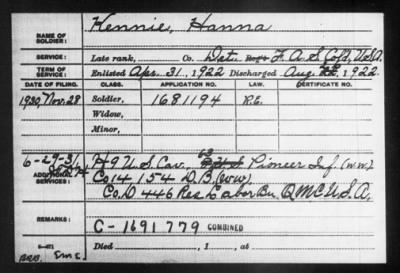 Kennie, Hanna
NAME OF SOLDIER:
SERVICE: Late rank, Co. Det. Reg't F. A. S. Sofd, U.S.A.
TERM OF SERVICE: Enlisted Apr. 31, 1922 Discharged Aug. 22, 1922.
DATE OF FILING. CLASS. APPLICATION NO. LAW. CERTIFICATE NO.
1930, Nov. 28 Soldier, 1681194 R.E.
Widow,
Minor,
6-29-31 H 9 U S Cav, 63 Pioneer Inf. (W.W.)
ADDITIONAL SERVICES: Co 14 154 D. B. (WW)
Co. D 446 Res Labor Bn Q M C U. S. A.
REMARKS: C-1691779 COMBINED
Died , 1 , at